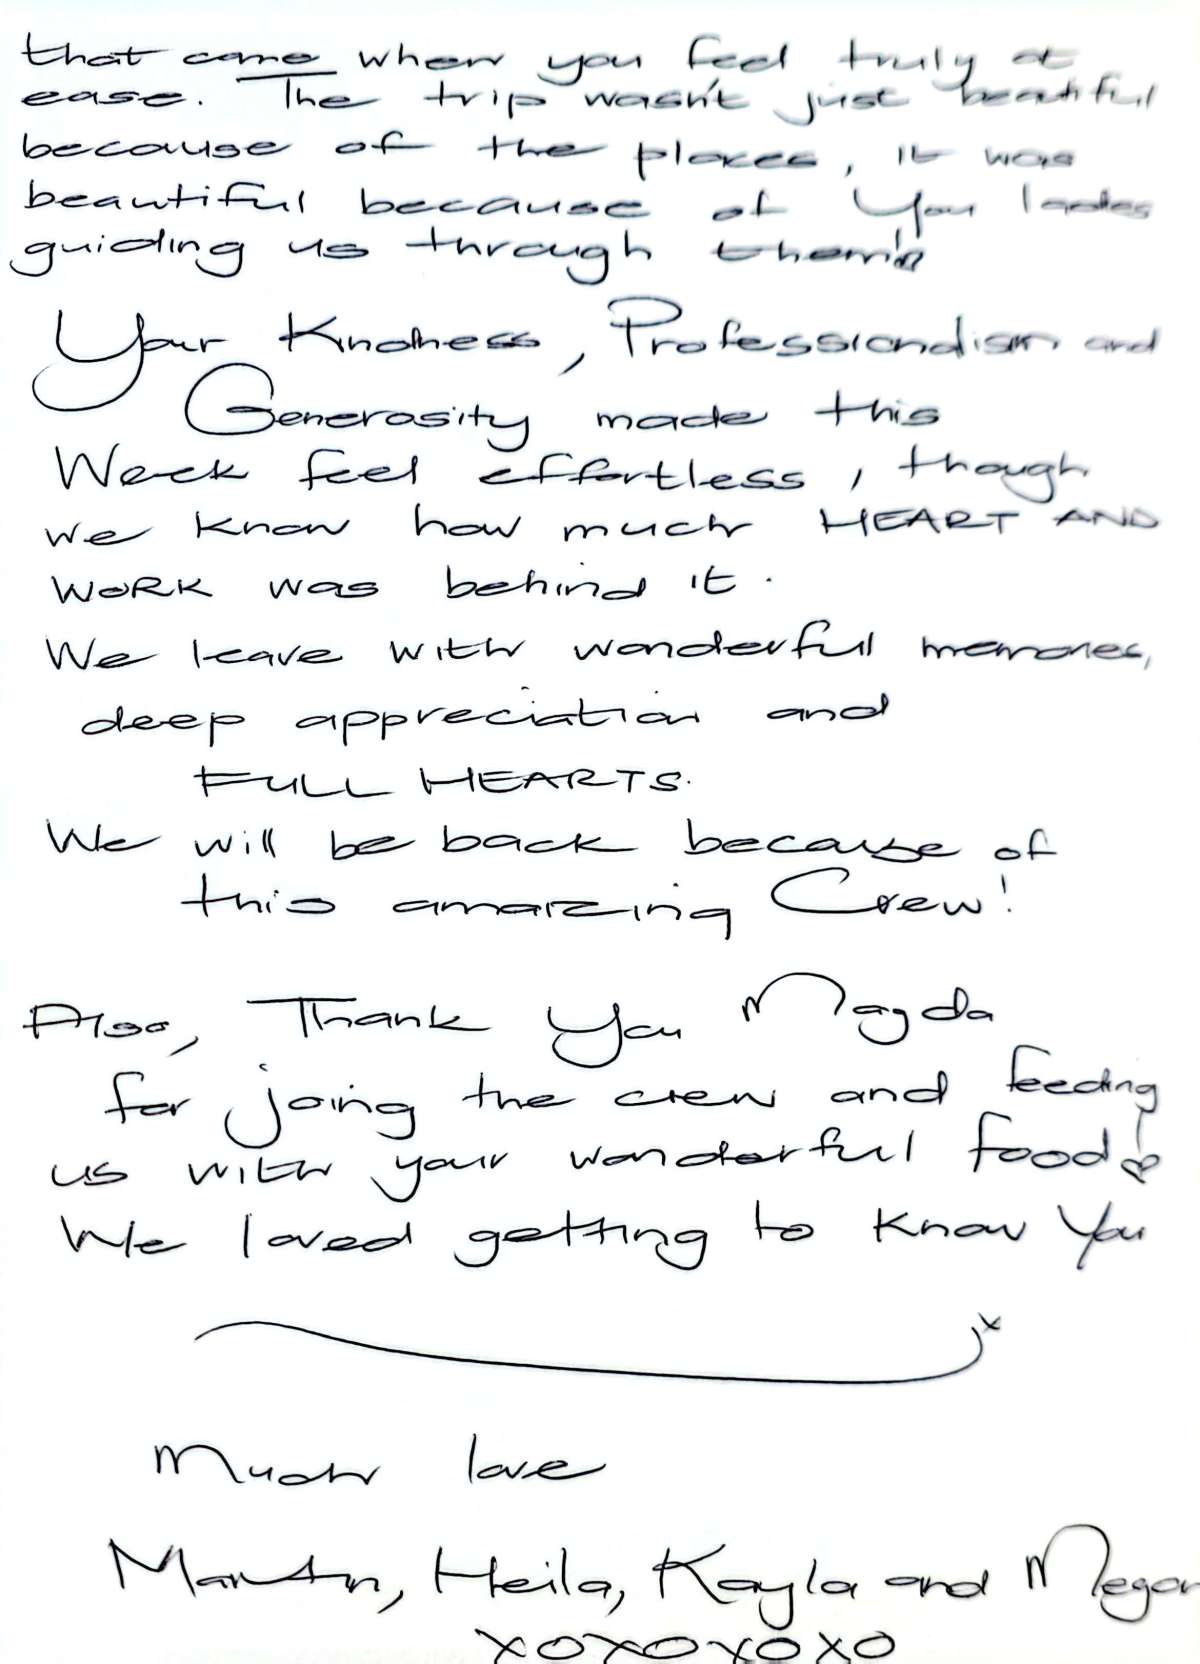 that come when you feel truly at
ease. The trip wasn't just beautiful
because of the places, it was
beautiful because of You ladies
guiding us through them!
Your Kindness, Professionalism and
Generosity made this
Week feel effortless, though
we know how much HEART AND
WORK was behind it.
We leave with wonderful memories,
deep appreciation and
FULL HEARTS.
We will be back because of
this amazing Crew!
Also, Thank You Magda
for joing the crew and feeding
us with your wonderful food!
We loved getting to know You
x
Much love
Martin, Heila, Kayla and Megan
XOXOXOXO